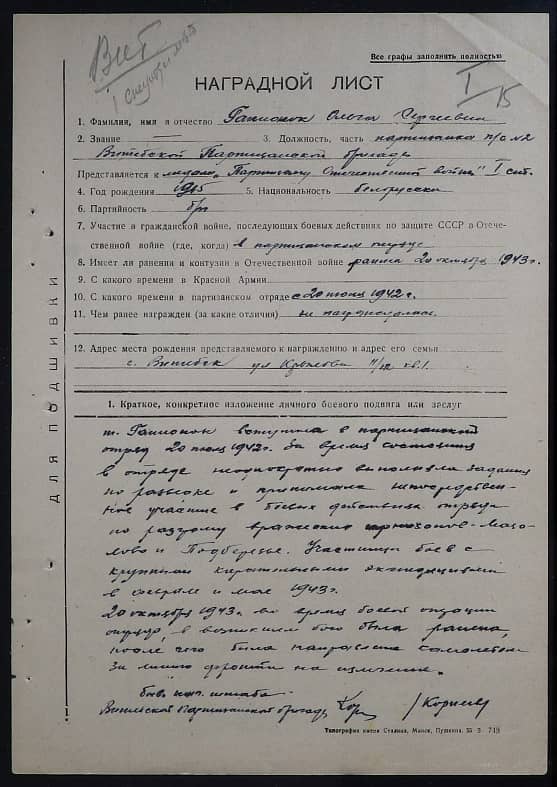 Вит
I
I
15
Все графы заполнить полностью
НАГРАДНОЙ ЛИСТ
1. Фамилия, имя и отчество Гапионок Ольга Сергеевна
2. Звание — 3. Должность, часть партизанка п/о №2
Витебской Партизанской бригады
Представляется к медали „Партизану Отечественной войны" I ст.
4. Год рождения 1915 5. Национальность белорусска
6. Партийность б/п
7. Участие в гражданской войне, последующих боевых действиях по защите СССР в Отече-
ственной войне (где, когда) в партизанском отряде
8. Имеет ли ранении и контузии в Отечественной войне ранена 20 октября 1943 г.
9. С какого времени в Красной Армии
10. С какого времени в партизанском отряде с 20 июля 1942 г.
11. Чем ранее награжден (за какие отличия) не награждалась
12. Адрес места рождения представляемого к награждению и адрес его семьи
г. Витебск ул кв. 1.
1. Краткое, конкретное изложение личного боевого подвига или заслуг
т. Гапионок вступила в партизанский
отряд 20 июля 1942 г. За время состояния
в отряде неоднократно выполняла задания
по разведке и принимала непосредствен-
ное участие в боевых действиях отряда
по разгрому вражеских гарнизонов - Мазо-
лово и Подберезье. Участница боев с
крупными карательными экспедициями
в феврале и мае 1943 г.
20 октября 1943 г. во время боевой операции
отряда, в возникшем бою была ранена,
после чего была направлена самолетом
за линию фронта на излечение.
бывш. нач. штаба
Витебской Партизанской бригады /Корнеев/
ДЛЯ ПОДШИВКИ
Типография имени Сталина, Минск, Пушкина, 55 З. 749